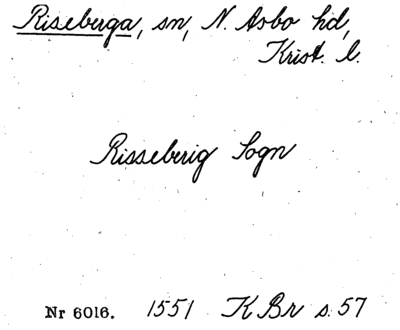 Riseberga, sn, N. Åsbo hd,
Krist. l.
Risseberig Sogn
Nr 6016. 1551 K Br s. 57